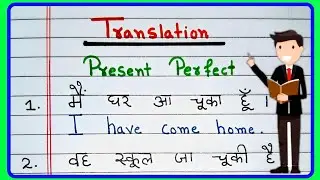 Translation
Present Perfect
1. मैं घर आ चूका हूँ ।
I have come home.
2. वह स्कूल जा चूकी है